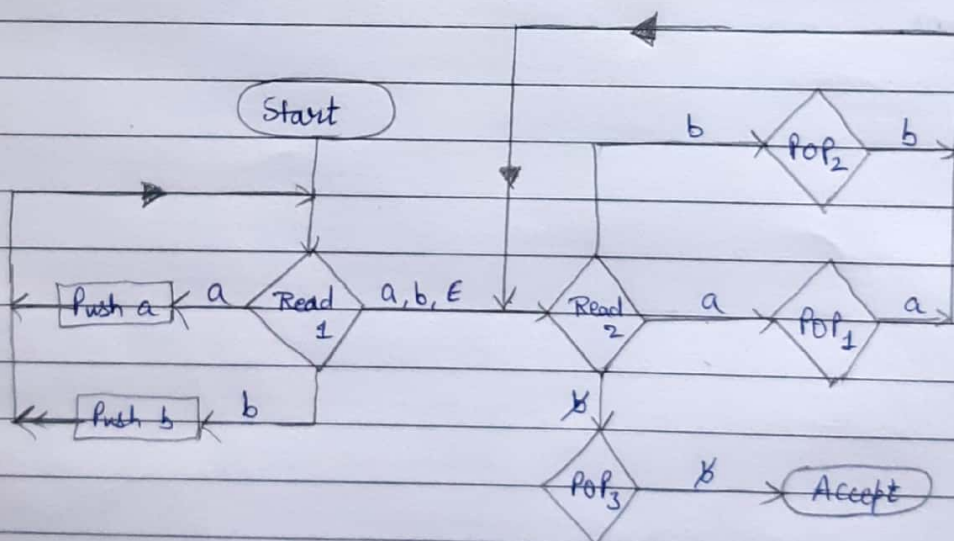 Start
b POP2 b
Push a a Read 1 a, b, ε Read 2 a POP1 a
Push b b
b̸
POP3 b̸ Accept